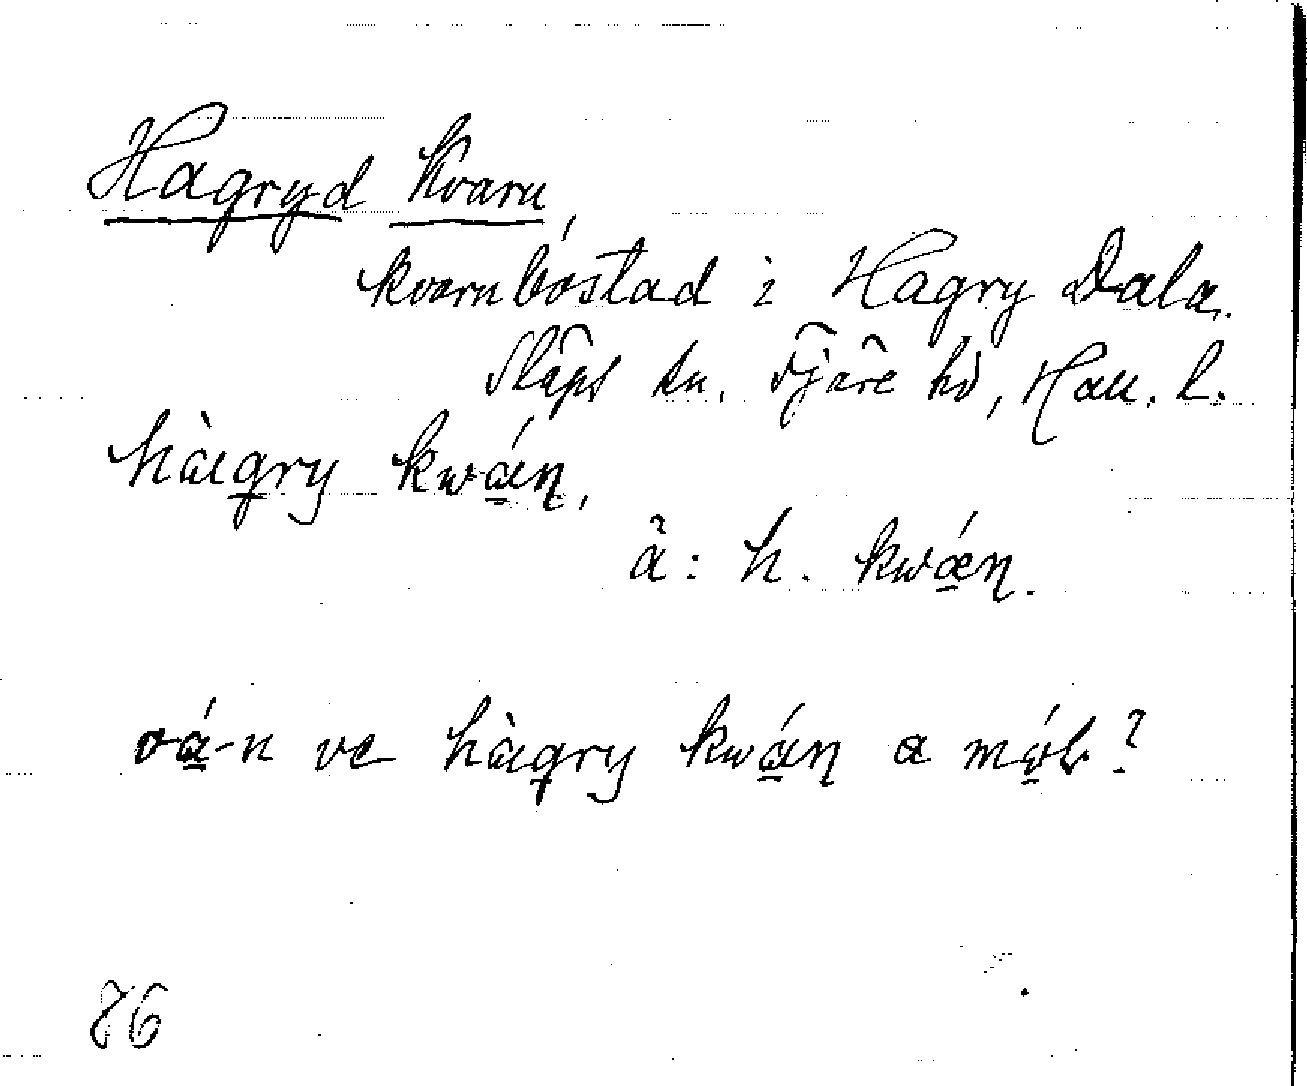 Hagryd Kvarn,
kvarnbóstad i Hagry Dala.
Släps sn. Fjäre hd, Hall. l.
hàgry kwáɳ,
ä: h. kwǽɳ.
vá-n ve hàgry kwáɳ a
76